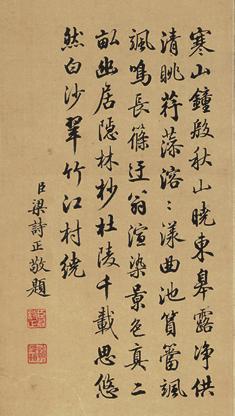 寒山鐘殷秋山曉東皋露净供
清眺荇藻溶溶漾曲池篔簹颯
颯鳴長篠迂翁渲染景色真二
畝幽居隱林杪杜陵千載思悠
然白沙翠竹江村繞
臣梁詩正敬題